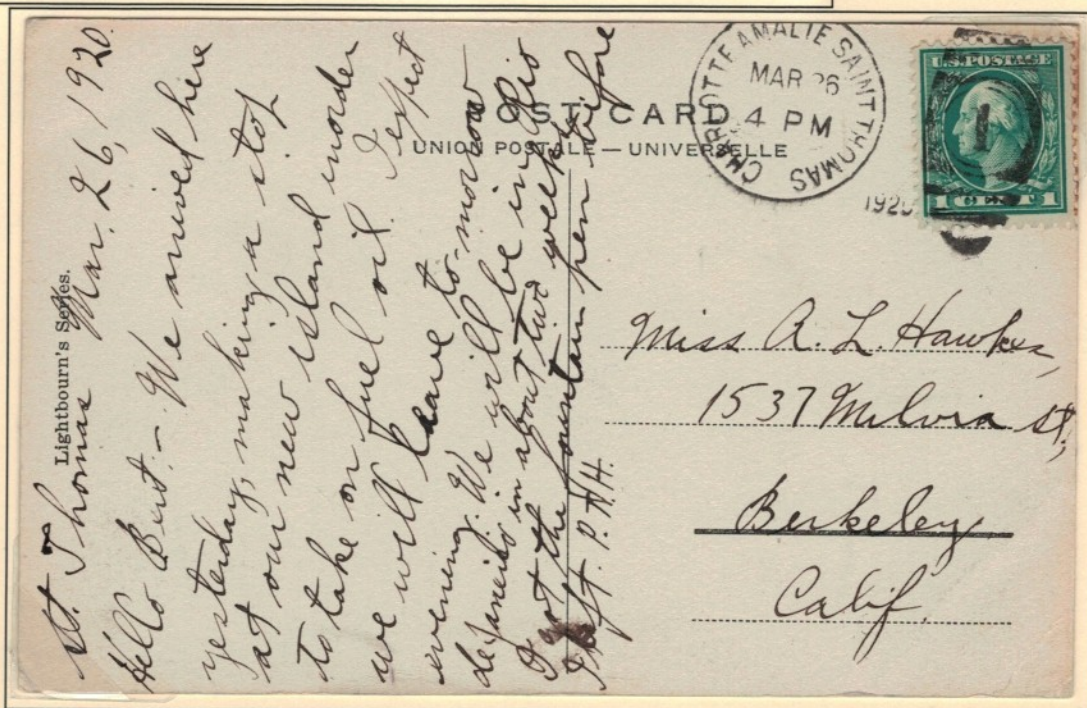 St. Thomas Mar. 26, 1920.
Hello Bert:- We arrived here
yesterday, making a stop
at our new island inorder
to take on fuel oil. I expect
we will leave to-morrow
evening. We will be in Rio
de Janeiro in about two weeks
I got the fountain pen before
I left. P.N.H.
Lightbourn's Series.
POST CARD
UNION POSTALE — UNIVERSELLE
CHARLOTTE AMALIE SAINT THOMAS
MAR 26
4 PM
1920
U.S. POSTAGE
1
1 CENT 1
Miss A. L. Hawkes,
1537 Milvia St,
Berkeley
Calif.